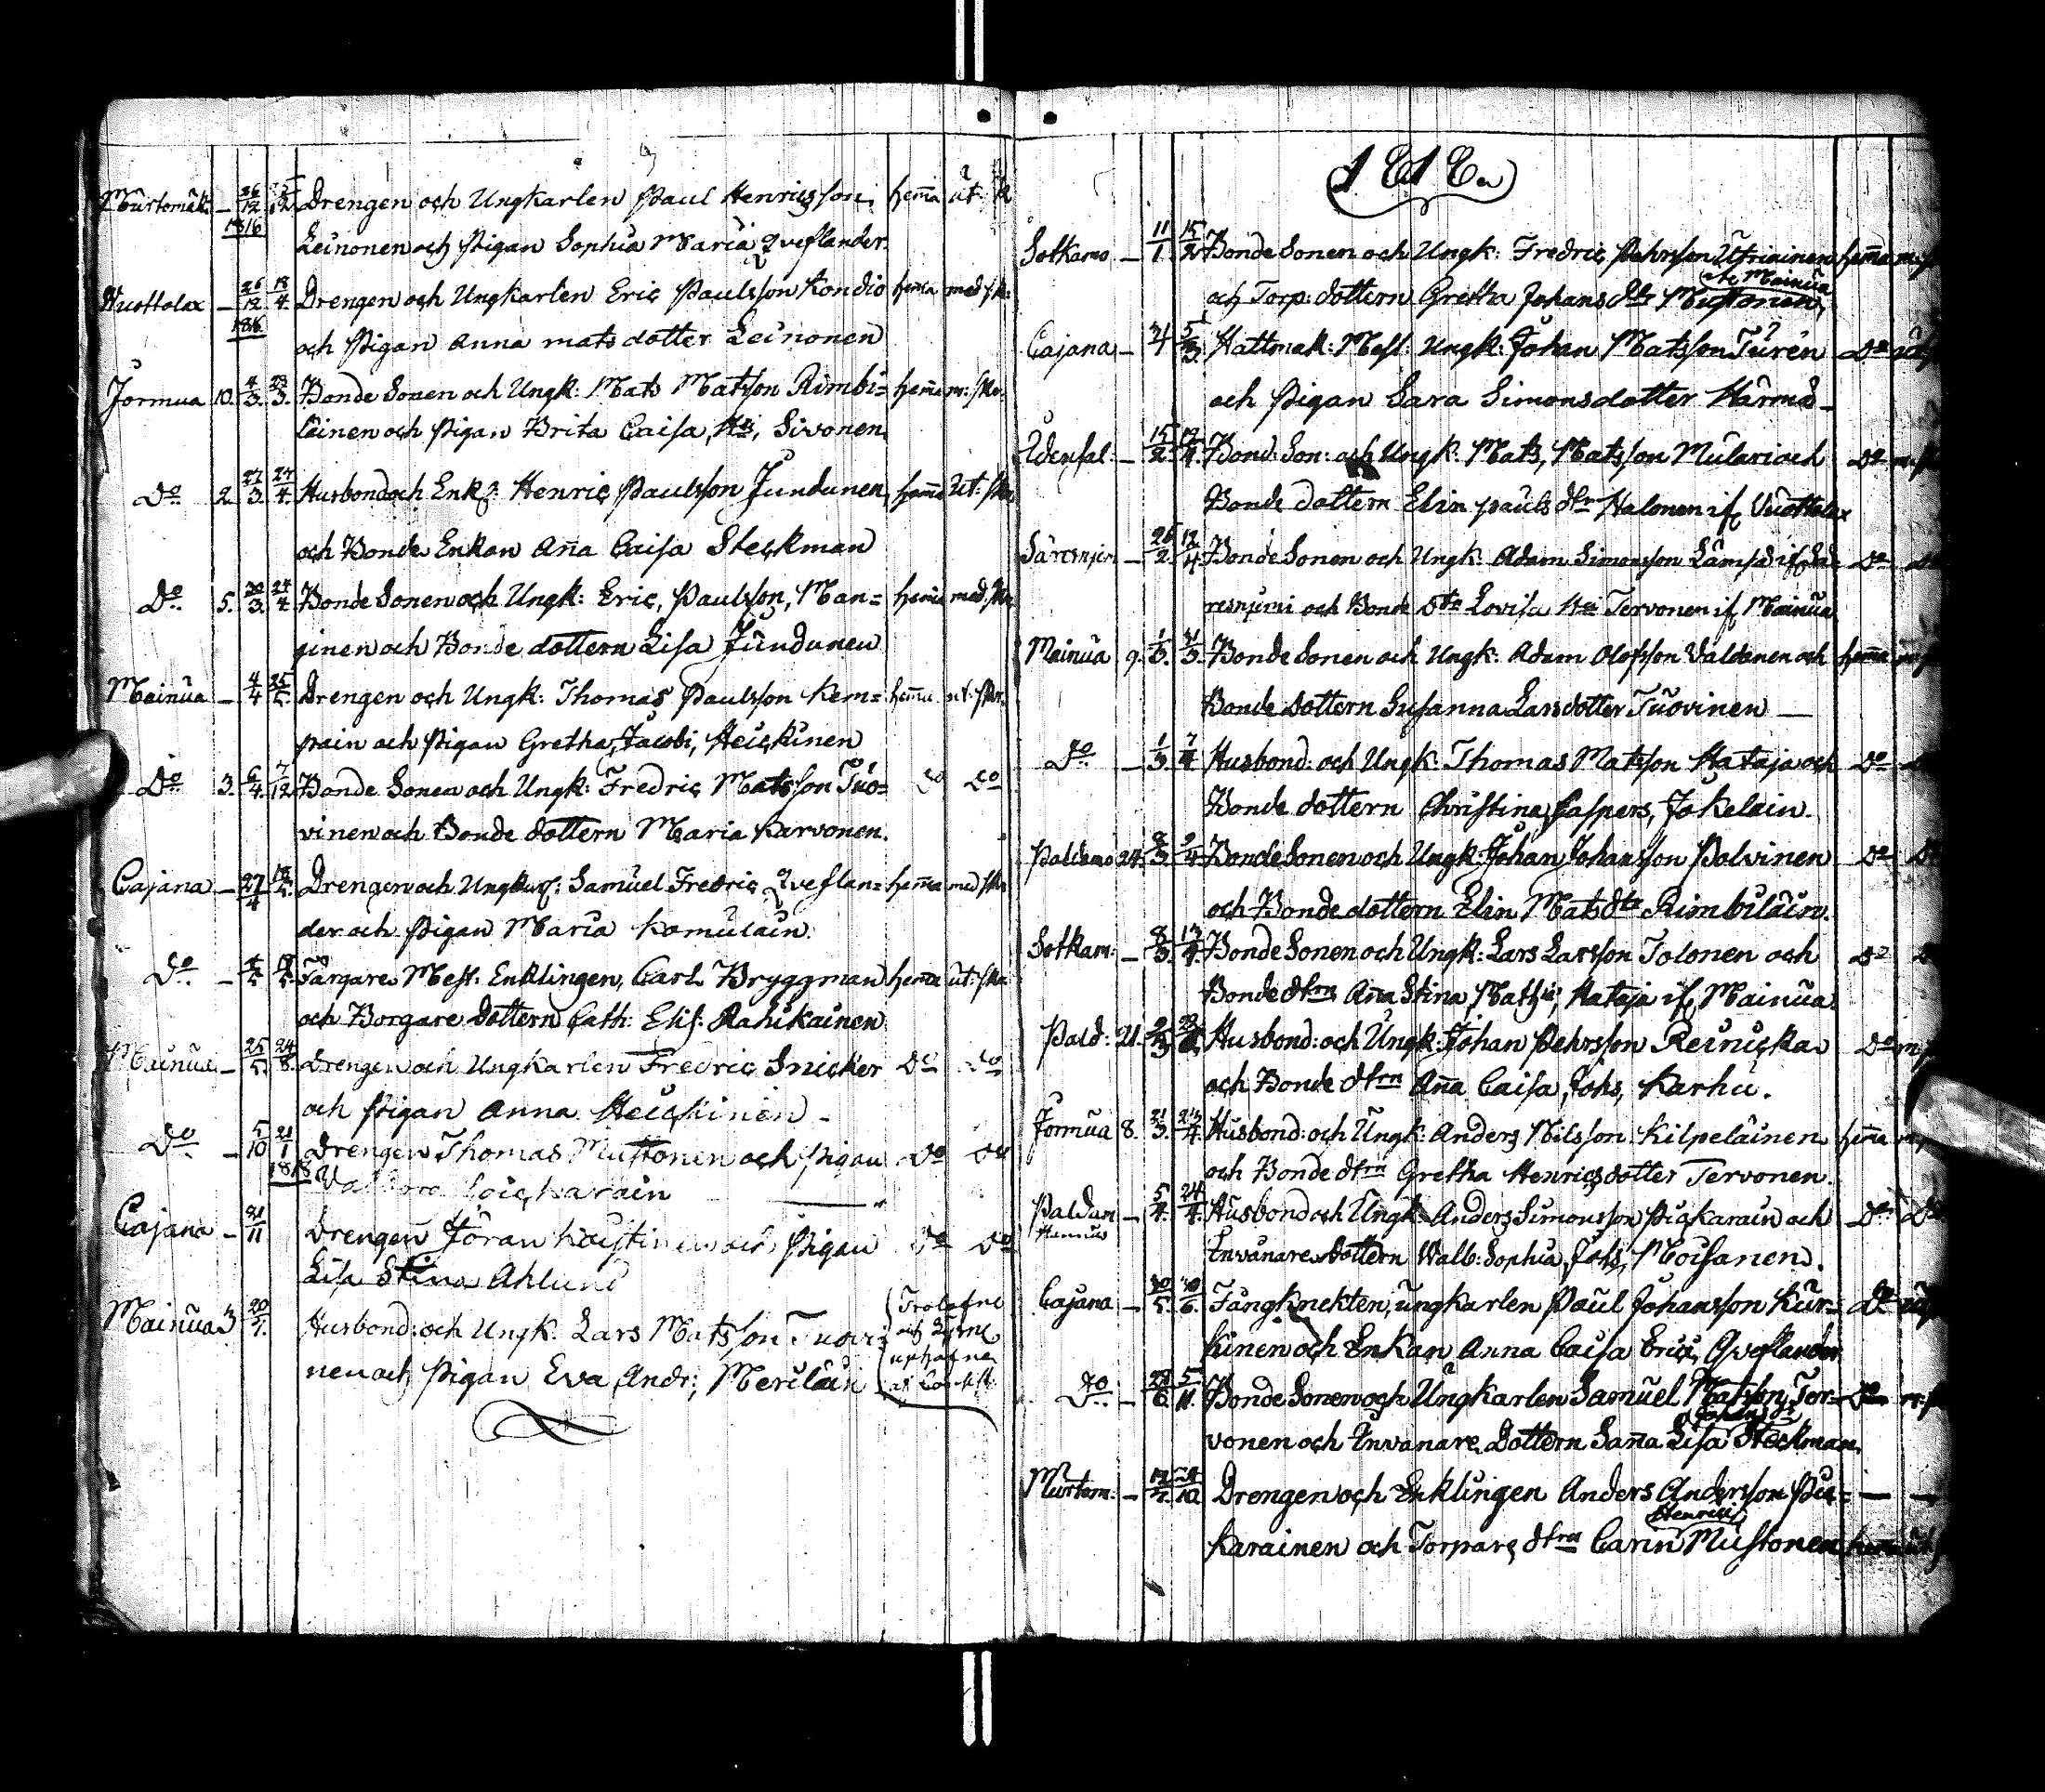 Murtomäk. – 26/12 1816 /12 Drengen och Ungkarlen Paul Henricsson hema ut. sk
Leinonen och Pigan Sophia Maria Qveflander.
Vuottolax – 26/12 1816 18/4 Drengen och Ungkarlen Eric Paulsson Kondio hema med sk:
och Pigan Anna mats dotter Leinonen
Jormua 10. 4/3. 23/3. Bonde Sonen och Ungk: Mats Matsson Rimbi= hema m: sk.
läinen och Pigan Brita Caisa, Sivonen
Do 2 27/3. 24/4. Husbond och Enkl: Henric Paulsson Jundunen hema ut: sk
och Bonde Enkan Ana Caisa Steckman
Do 5. 30/3. 24/4 Bonde Sonen och Ungk: Eric, Paulsson, Man= hema med. sk
ginen och Bonde dottern Lisa Jundunen
Mainua – 4/4 25/5. Drengen och Ungk: Thomas Paulsson Kem= hema ut: sk.
pain och Pigan Gretha, Jacobi, Heickinen
Do 3. 6/4. 7/12 Bonde Sonen och Ungk: Fredric Matsson Tuo= Do Do
vinen och Bonde dottern Maria Karvonen.
Cajana – 27/4 18/5. Drengen och Ungkarl: Samuel Fredric Qveflan= hema med sk
der och Pigan Maria Komulain.
Do. – 4/5 18/5. Färgare Mest. Enklingen, Carl Bryggman hema ut: sk.
och Borgare dottern Cath: Elis: Rahikainen
Mainua – 25/5. 24/8. Drengen och Ungkarlen Fredric Snicker Do Do
och Pigan Anna Heickinen –
Do – 5/10 21/1 1818 Drengen Thomas Mustonen och Pigan Do Do
Cajana – /11 Drengen Jöran och Pigan Do Do
Lisa Stina Ahlund
Mainua 3 20/7. Husbond: och Ungk: Lars Matsson Tuovi=
nen och Pigan Eva, Andr:, Meriläin
1818.
Sotkamo – 11/1. 15/2 Bonde Sonen och Ungk: Fredric Pehrsson Utriainen hema m: s
af Mainua
och Torp: dottern Gretha Johans dtr Mustonen,
Cajana – 5/3. Hattmak: Mest: Ungk: Johan Matsson Turén Do ut
och Pigan Sara Simonsdotter Härmä –
Idensal: – 15/2. 12/4. Bond: Son: och Ungk: Mats, Matsson Mulari och Do m: s
Bonde dottern Elin Pauls dtrn Halonen if Vuottolax
Säresniem – 26/2. 12/4 Bonde Sonen och Ungk: Adam Simonsson Lämsä if Sä= Do D
resniemi och Bonde Dtr Lovisa Tervonen if Mainua
Mainua 9. 1/3. 31/3. Bonde Sonen och Ungk: Adam Olofsson Valdanen och hema m: s
Bonde dottern Susanna Larsdotter Tuovinen –
Do – 1/3. 7/4. Husbond: och Ungk: Thomas Matsson Hataja och Do D
Bonde dottern Christina, Caspers, Jokelain.
Paldamo 24. 8/3 /4 Bonde Sonen och Ungk: Johan Johansson Polvinen Do D
och Bonde dottern Elin Mats dtr Rimbiläin.
Sotkam: – 8/3. 13/4. Bonde Sonen och Ungk: Lars Larsson Tolonen och Do D
Bonde dtrn Ana Stina, Hataja if Mainua.
Pald: 21. /3 Husbond: och Ungk: Johan Pehrsson Reinicka Do m:
och Bonde dtrn Ana Caisa, Johs, Karhu.
Jormua 8. 21/3. /4. Husbond: och Ungk: Anders Nilsson Kilpeläinen hema m:
och Bonde dtrn Gretha Henricsdotter Tervonen.
Paldam – 5/4. 24/4. Husbond och Ungk: Anders Simonsson Pickarain och Do D
Invånare dottern Walb: Sophia, Johs, Moisanen.
Cajana – 30/5. 30/6. Fångknekten, ungkarlen Paul Johansson Kur= Do ut
kinen och Enkan Anna Caisa Erici, Qveflander
Do. – /6. 5/11. Bonde Sonen och Ungkarlen Samuel Matsson, Ter= Do m:
vonen och Invånare Dottern Sana Lisa Steckman.
Murtom: – /10 Drengen och Enklingen Anders Andersson Pic= – –
Henrici
karainen och Torpare dtrn Carin Mustonen hema ut